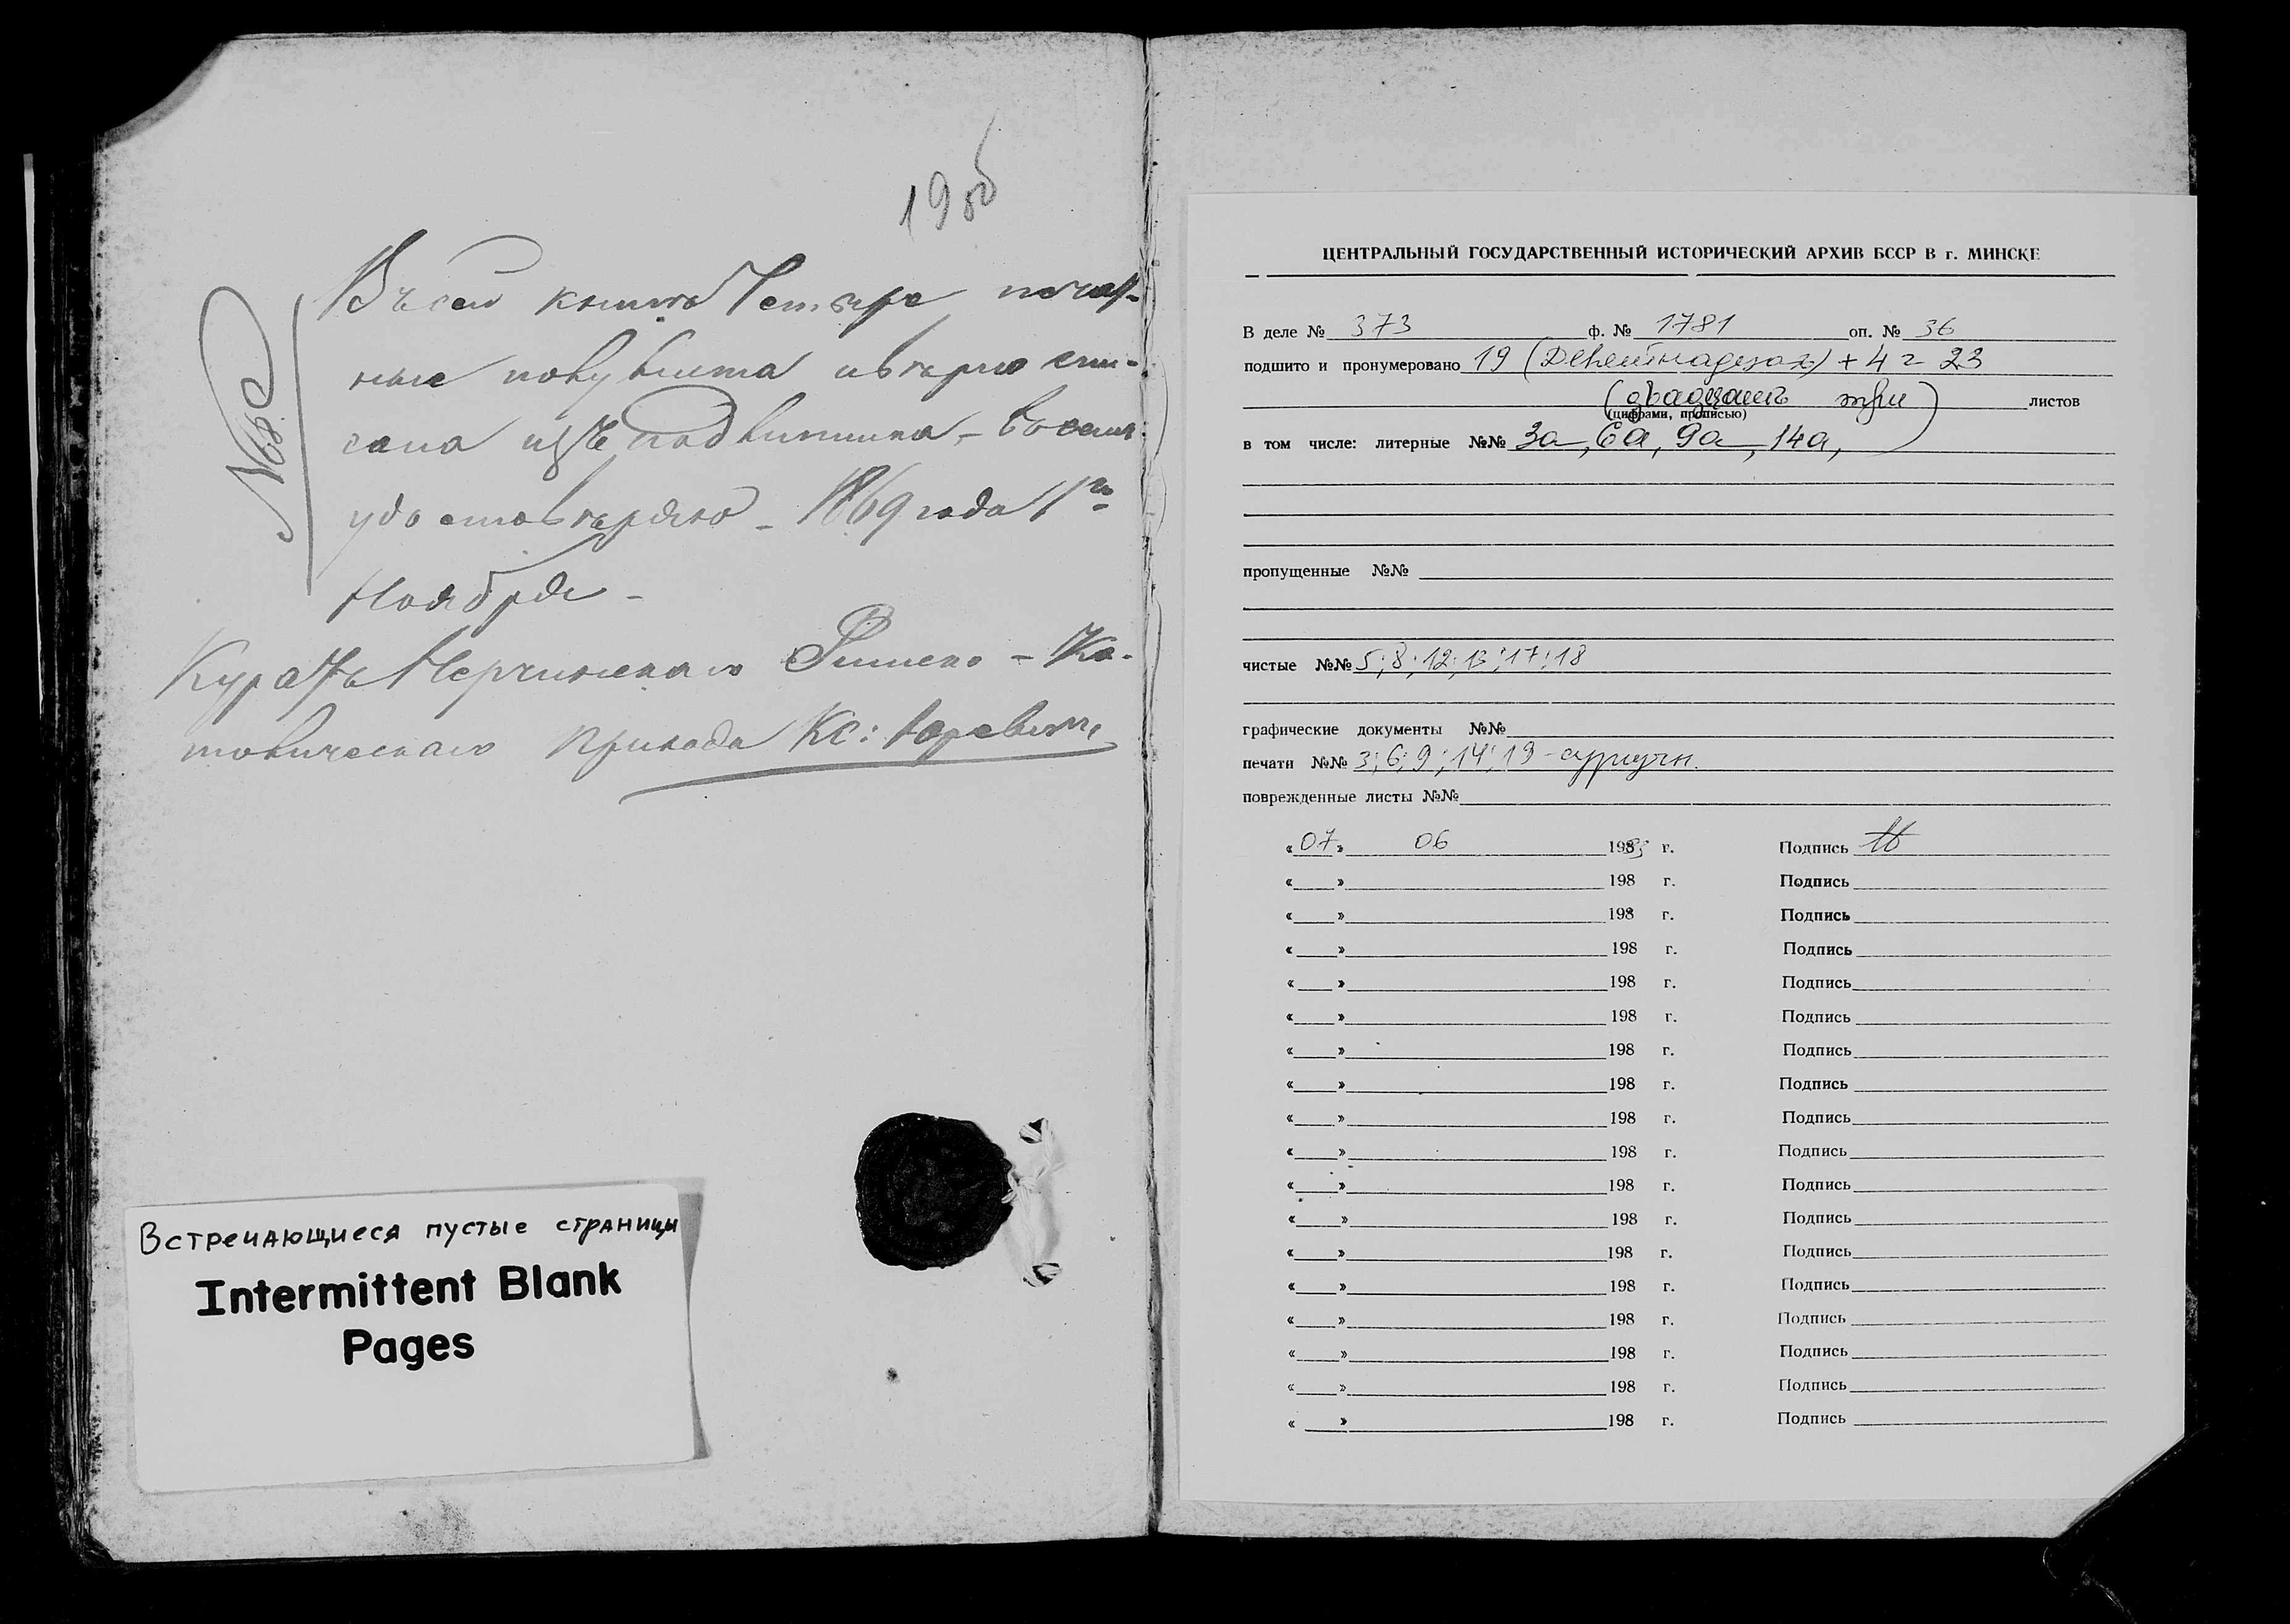 19об
№ 68.
Въ сей книгѣ Четыре печат-
ные полулиста и вѣрно спи-
сана изъ подлинника, – въ семъ
удостовѣряю – 1869 года 1го
Ноября –
Куратъ Римско – Ка-
толическаго прихода Кс:
Встречающиеся пустые страницы
Intermittent Blank
Pages
ЦЕНТРАЛЬНЫЙ ГОСУДАРСТВЕННЫЙ ИСТОРИЧЕСКИЙ АРХИВ БССР В г. МИНСКЕ
В деле № 373 ф. № 1781 оп. № 36
подшито и пронумеровано 19 (Девятнадцать) + 4 = 23
(двадцать три) листов
(цифрами, прописью)
в том числе: литерные №№ 3а, 6а, 9а, 14а,
пропущенные №№
чистые №№ 5; 8; 12; 13; 17; 18
графические документы №№
печати №№ 3; 6; 9; 14; 19 - сургучн.
поврежденные листы №№
« 07 » 06 1983 г. Подпись
« » 198 г. Подпись
« » 198 г. Подпись
« » 198 г. Подпись
« » 198 г. Подпись
« » 198 г. Подпись
« » 198 г. Подпись
« » 198 г. Подпись
« » 198 г. Подпись
« » 198 г. Подпись
« » 198 г. Подпись
« » 198 г. Подпись
« » 198 г. Подпись
« » 198 г. Подпись
« » 198 г. Подпись
« » 198 г. Подпись
« » 198 г. Подпись
« » 198 г. Подпись